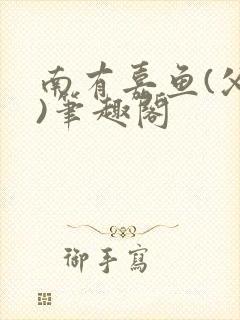 南有嘉鱼(父
)筆趣閣
御手寫